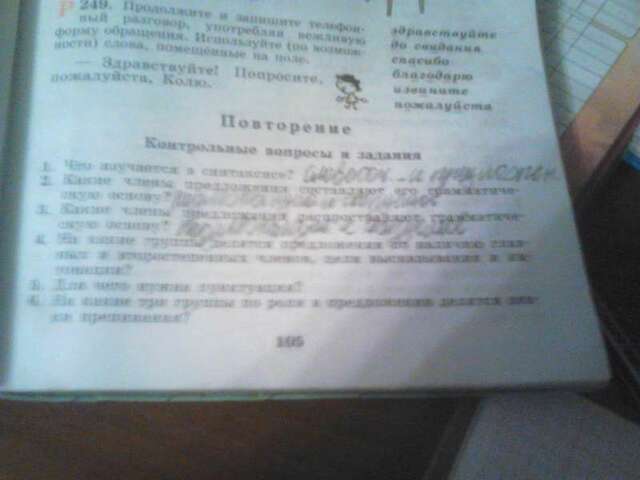 249. Продолжите и запишите телефон-
ный разговор, употребляя вежливую
форму обращения. Используйте (по возмож-
ности) слова, помещённые на поле.
— Здравствуйте! Попросите,
пожалуйста, Колю.
здравствуйте
до свидания
спасибо
благодарю
извините
пожалуйста
Повторение
Контрольные вопросы и задания
1. Что изучается в синтаксисе?
2. Какие члены предложения составляют его грамматиче-
скую основу?
3. Какие члены предложения распространяют грамматиче-
скую основу?
4. На какие группы делятся предложения по наличию глав-
ных и второстепенных членов, цели высказывания и ин-
тонации?
5. Для чего нужна пунктуация?
6. На какие три группы по роли в предложении делятся зна-
ки препинания?
105